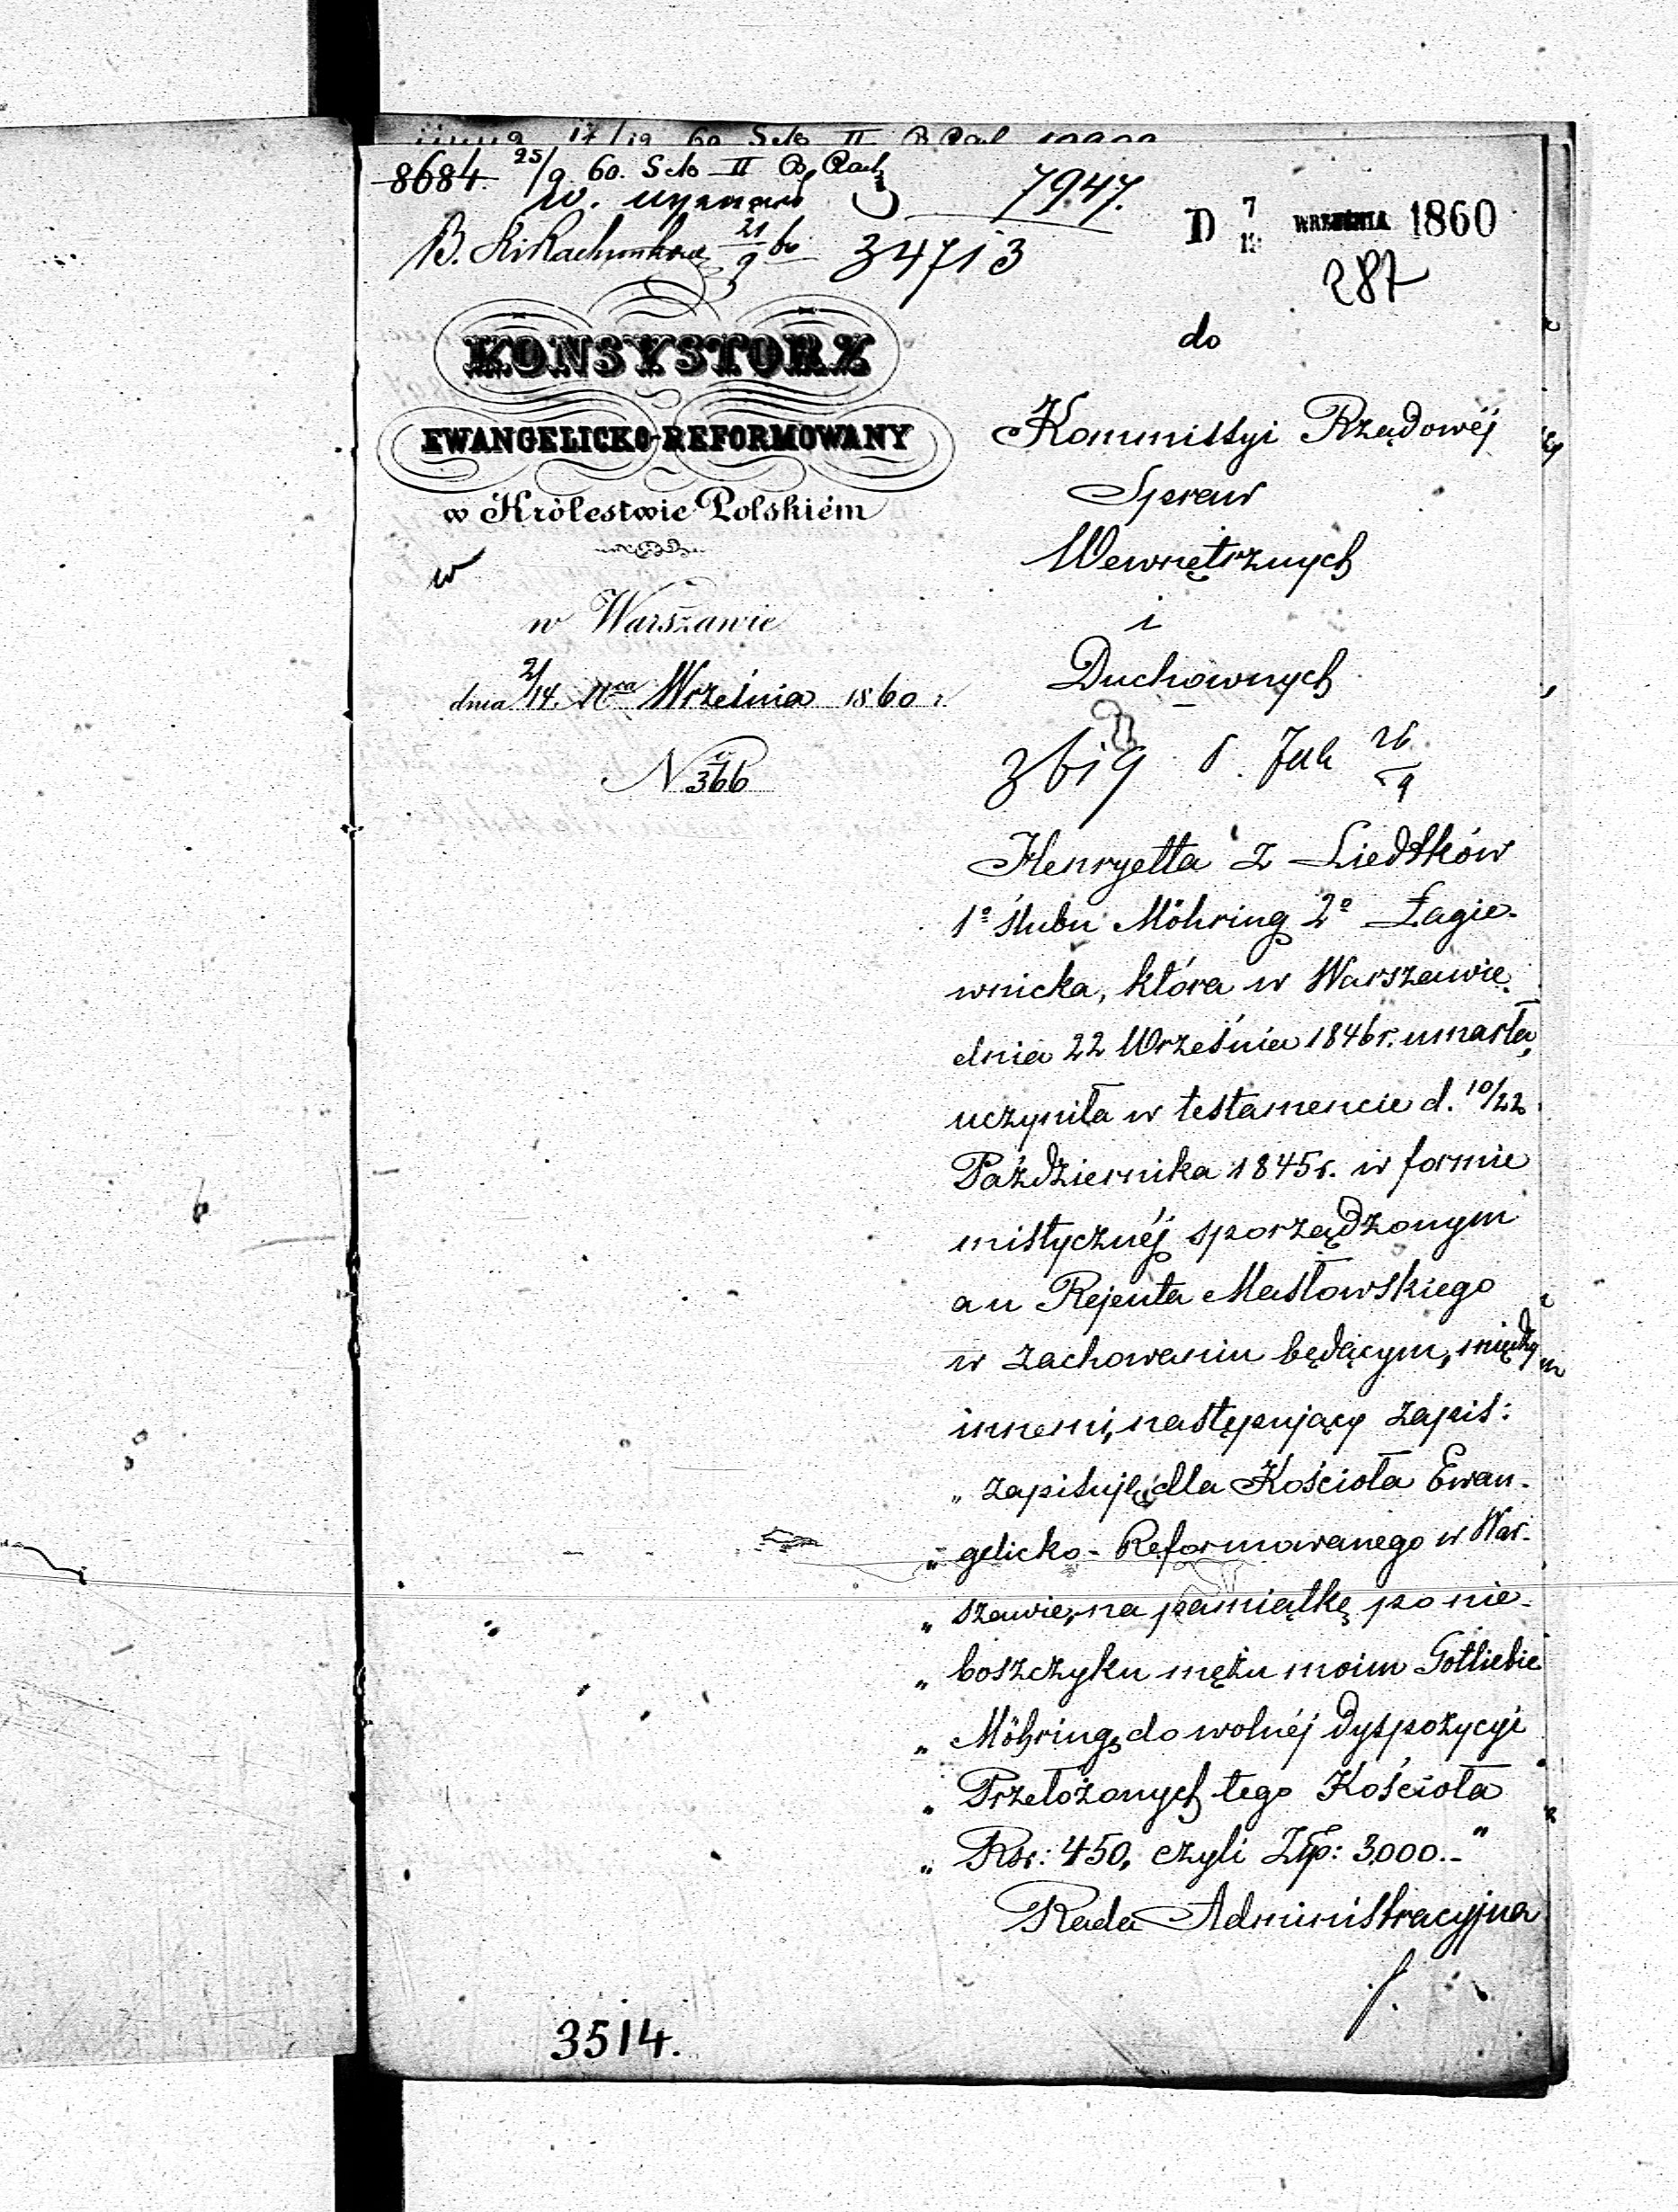 8684. 25/9 60. Sek II
7947.
D 7 WRZEŚNIA 1860
21/9 60
34713
287
KONSYSTORZ
EWANGELICKO-REFORMOWANY
w Królestwie Polskiém
w Warszawie
dnia 2/14 Września 1860 r.
N 366
do
Kommissyi Rządowéj
Spraw
Wewnętrznych
i
Duchownych
26/9
Henryetta z Liedtków
1º ślubu Möhring 2º Łagie-
wnicka, która w Warszawie
dnia 22 Września 1846 r. umarła,
uczyniła w testamencie d. 10/22
Października 1845 r. w formie
mistycznéj sporządzonym
a u Rejenta Masłowskiego
w zachowaniu będącym, między
innemi, następujący zapis:
„ zapisuję dla Kościoła Ewan-
„ gelicko-Reformowanego w War-
„ szawie, na pamiątkę po nie-
„ boszczyku mężu moim Gotliebie
„ Möhring, do wolnéj dyspozycyi
„ Przełożonych tego Kościoła
„ Rsr: 450, czyli Złp: 3,000.-"
Rada Administracyjna
3514.